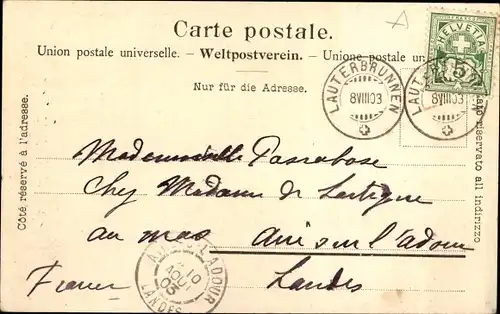 Carte postale.
Union postale universelle. – Weltpostverein. – Unione postale
Nur für die Adresse.
Côté réservé à l'adresse.
riservato all indirizzo
HELVETIA
5
LAUTERBRUNNEN
8 VIII 03
LAUTERBRUNNEN
8 VIII 03
Mademoiselle Passabose
Chez Madame de Lartigue
au mas Aire sur l'adour
Landes
France
L'ADOUR
10
AOUT
03
LANDES